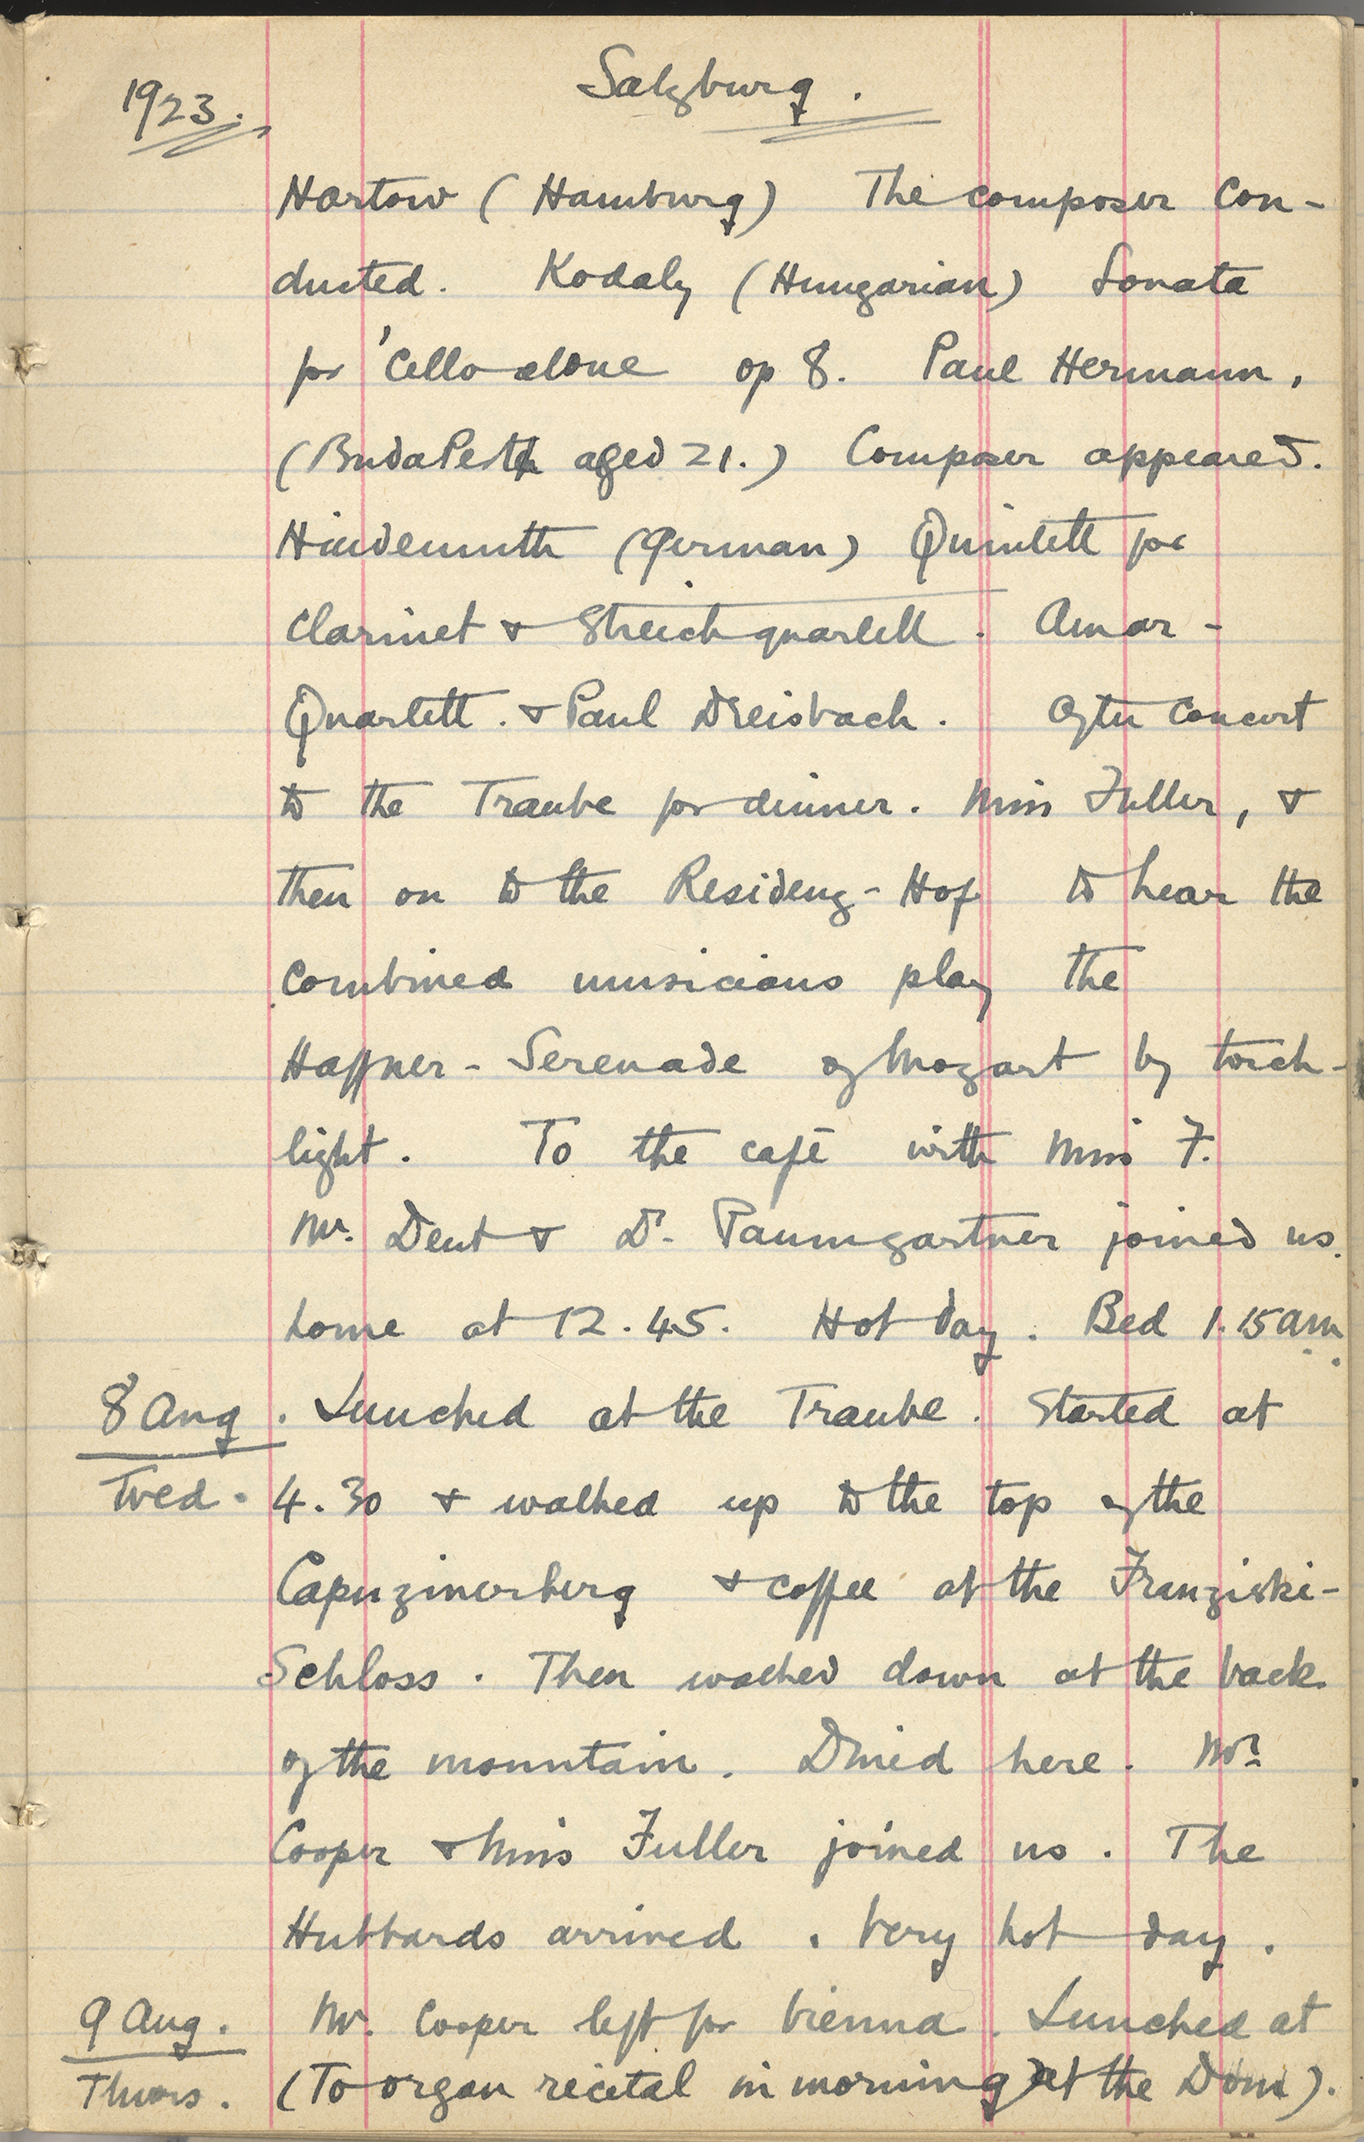 1923.
Salzburg.
Hartow (Hamburg) The composer con-
ducted. Kodaly (Hungarian) Sonata
for 'Cello alone op 8. Paul Hermann,
(BudaPesth aged 21.) Composer appeared.
Hindemuth (German) Quintett for
Clarinet & Streichquartett. Amar-
Quartett. & Paul Dreisbach. After concert
to the Traube for dinner. Miss Fuller, &
then on to the Residenz-Hof to hear the
combined musicians play the
Haffner-Serenade of Mozart by torch-
light. To the café with Miss F.
Mr. Dent & Dr. Paumgartner joined us.
home at 12.45. Hot day. Bed 1.15 am.
8 Aug. Lunched at the Traube. Started at
Wed. 4.30 & walked up to the top of the
Capuzinerberg & coffee at the Franziski-
Schloss. Then walked down at the back
of the mountain. Dined here. Mr
Cooper & Miss Fuller joined us. The
Hubbards arrived. Very hot day.
9 Aug. Mr. Cooper left for Vienna. Lunched at
Thurs. (To organ recital in morning at the Dom).